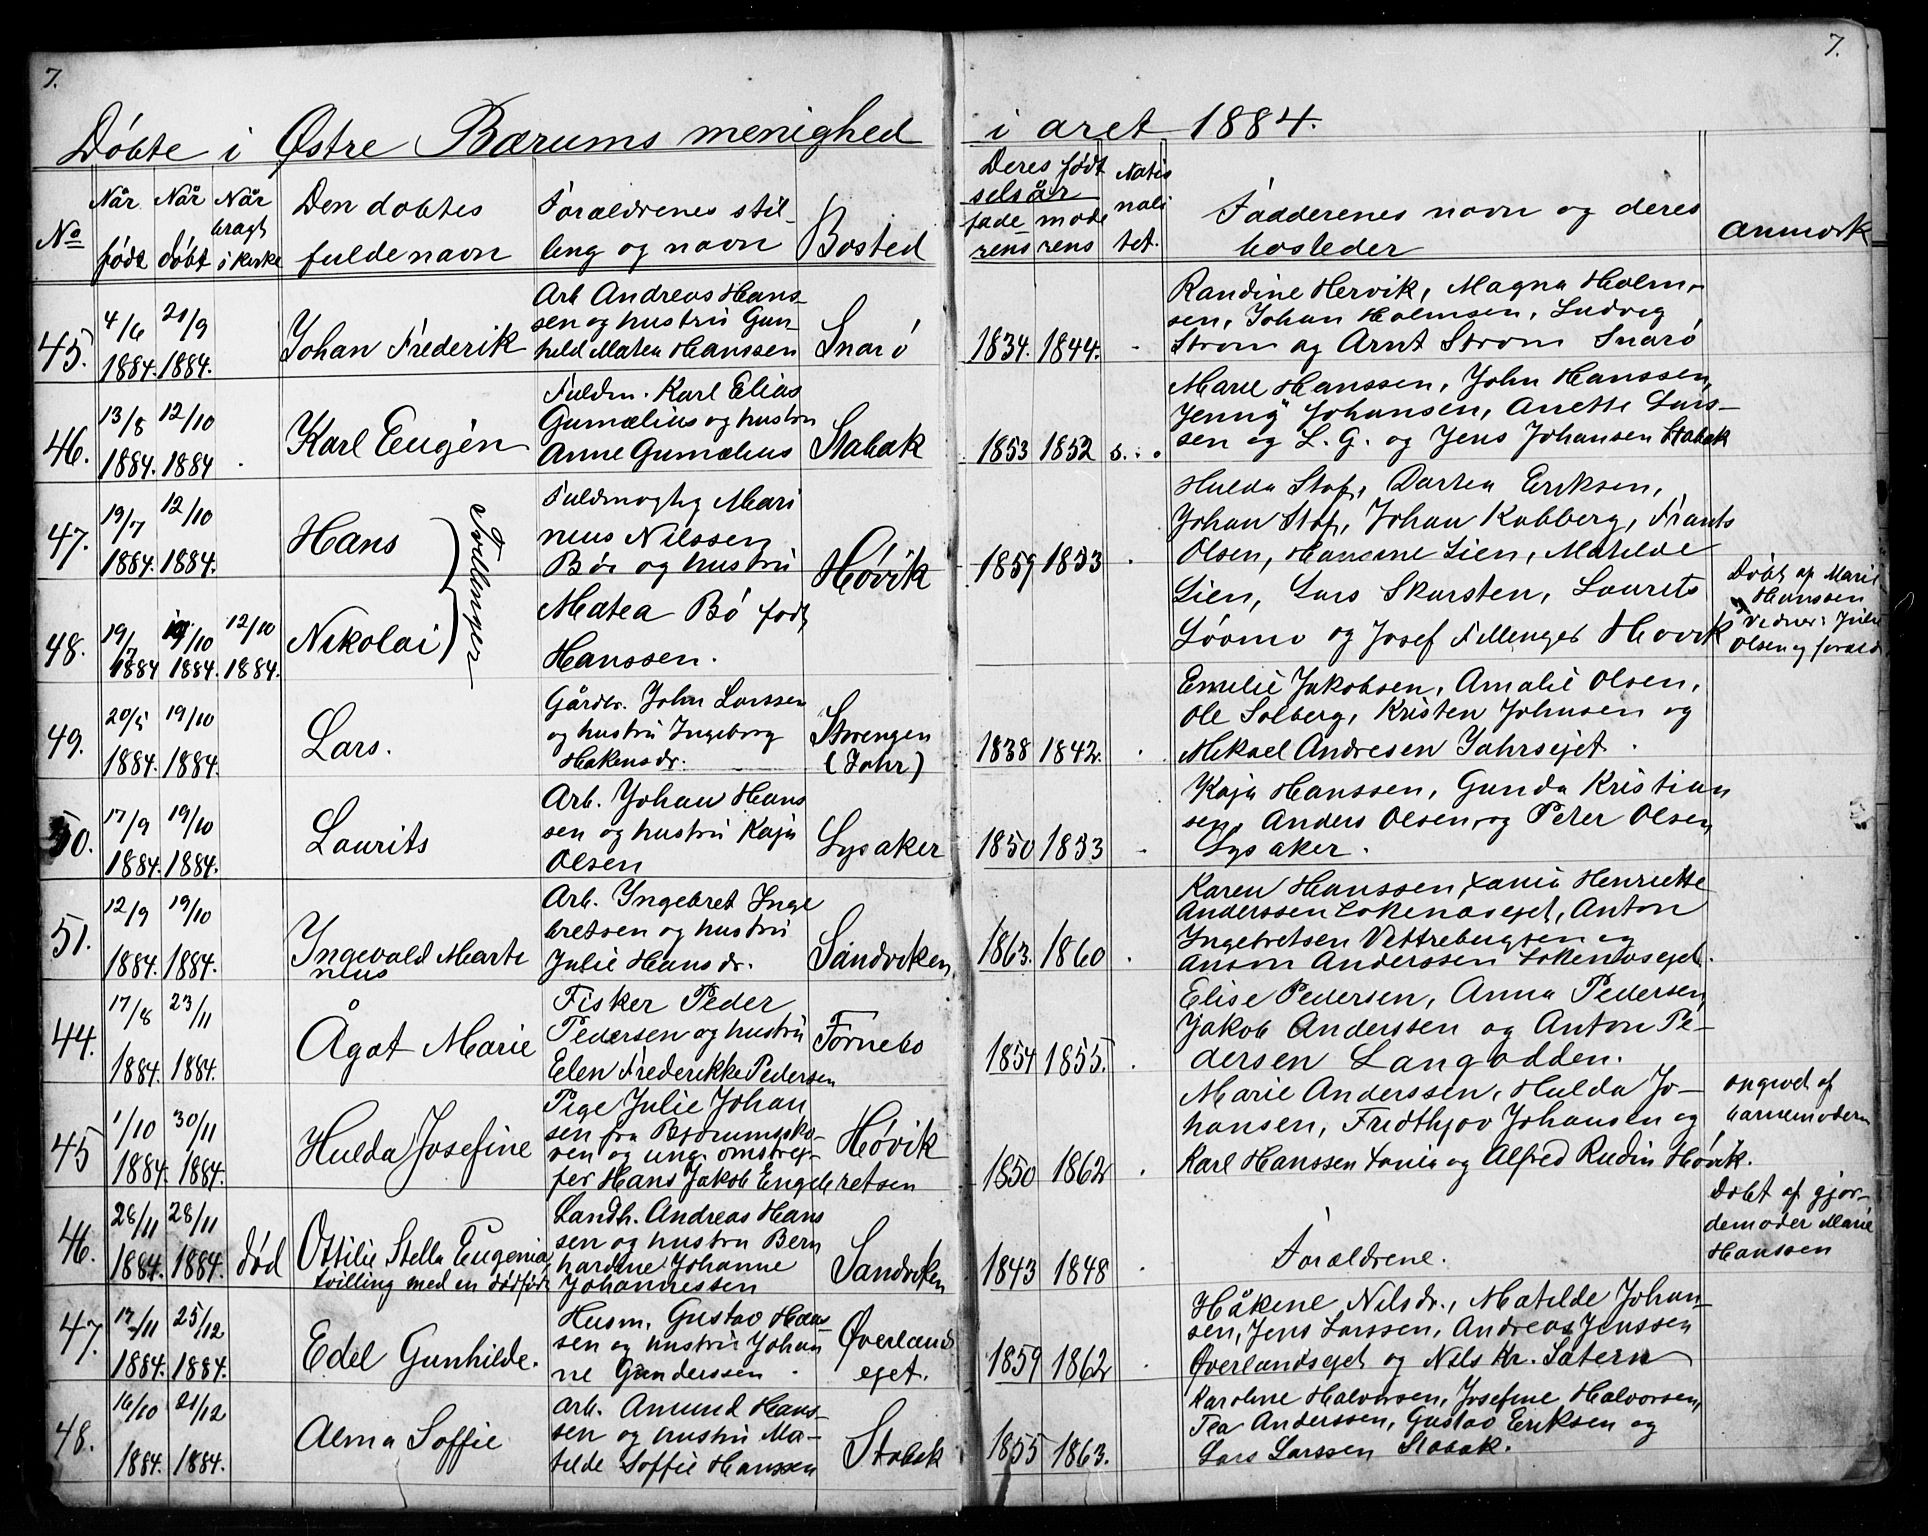 7.
7.
Döbte i Østre Bærums menighed
i året 1884.
No
Når født
Når döbt
Når bragt i kirke
Den döbtes fulde navn
Forældrenes stilling og navn
Bosted
Deres fødselsår
faderens
moderens
Nationalitet.
Faddernes navn og deres bosteder
Anmærk
45. 4/6 1884. 21/9 1884.
Johan Frederik
Arb Andreas Hans-
sen og hustru Gun-
hild Matea Hanssen
Snarö
1834. 1844.
Randine Hervik, Magna Holm-
sen, Johan Holmsen, Ludvig
Strøm og Arnt Strøm Snarö
46. 13/8 1884. 12/10 1884
Karl Eugén
Fuldm. Karl Elias
Gumælius og hustru
Anne Gumælius
Stabæk
1853 1852 s.
Marie Hanssen, John Hanssen,
Jenny Johansen, Anette Lars-
sen og L. G. og Jens Johansen Stabæk
47. 19/7 1884. 12/10 1884.
Hans
Tvillinger
Fuldmægtig Mari
nius Nilssen
Bö og hustru
Hövik
1859 1853
Hulda Stof, Dortea Eriksen,
Johan Stof, Johan Kobberg, Frants
Olsen, Hansine Lien, Matilde
48. 19/7 1884 19/10 1884. 12/10 1884.
Nikolai
Matea Bö født
Hanssen.
Lien, Lars Skarsten, Laurits
Löomo og Josef Fillinger Hövik
Döbt af Marie
Hanssen
Vidner: Julie
Olsen og foræld
49. 20/5 1884. 19/10 1884.
Lars.
Gårdbr. John Larssen
og hustru Ingeborg
Hakensdr.
Strengen
(Johr)
1838 1842.
Emilie Jakobsen, Amalie Olsen,
Ole Solberg, Kristen Johnsen og
Mikael Andresen Johrsejet.
50. 17/9 1884. 19/10 1884.
Laurits
Arb. Johan Hans
sen og hustru Kaja
Olsen
Lysaker
1850 1853
Kaja Hanssen, Gunda Kristian
sen, Anders Olsen, og Peter Olsen
Lysaker.
51. 12/9 1884. 19/10 1884.
Ingevald Marti
nius
Arb. Ingebret Inge
bretsen og hustru
Julie Hansdr.
Sandviken.
1863. 1860
Karen Hanssen, Henriette
Anderssen Lökenæsejet, Anton
Ingebretsen og
Anton Anderssen Lökenæsejet.
44. 17/8 1884. 23/11 1884.
Ågot Marie
Fisker Peder
Pedersen og hustru
Elen Frederikke Pedersen
Fornebo
1854 1855.
Elise Pedersen, Anna Pedersen,
Jakob Anderssen og Anton Pe-
dersen Langodden.
45 1/10 1884. 30/11 1884.
Hulda Josefine
Pige Julie Johan
sen fra Bjørumssko-
ven og ung. omstrej-
fer Hans Jakob Engebretsen
Hövik
1850 1862
Marie Anderssen, Hulda Jo-
hansen, Fridthjov Johansen og
Karl Hanssen og Alfred Rudin Hövik.
angivet af
barnemoderen
46. 28/11 1884. 28/11 1884. död
Ottilie Stella Eugenia
tvilling med en dödfødt
Landh. Andreas Hans
sen og hustru Bern
hardine Johanne
Johannessen
Sandviken
1843 1848
Forældrene.
Döbt af gjor-
demoder Marie
Hanssen
47. 17/11 1884. 25/12 1884.
Edel Gunhilde.
Husm. Gustav Hans-
sen og hustru Johan
ne Gundersen
Øverlands
ejet.
1859 1862
Håkine Nilsdr., Matilde Johan-
sen, Jens Larssen, Andreas Jenssen
Øverlandsejet og Nils Kr. Sætern
48. 16/10 1884. 21/12 1884.
Alma Soffie
Arb. Amund Hans-
sen og hustru Ma-
tilde Soffie Hanssen
Stabæk
1855 1863.
Karoline Halvorsen, Josefine Halvorsen,
Tea Anderssen, Gustav Eriksen og
Lars Larssen Stabæk.